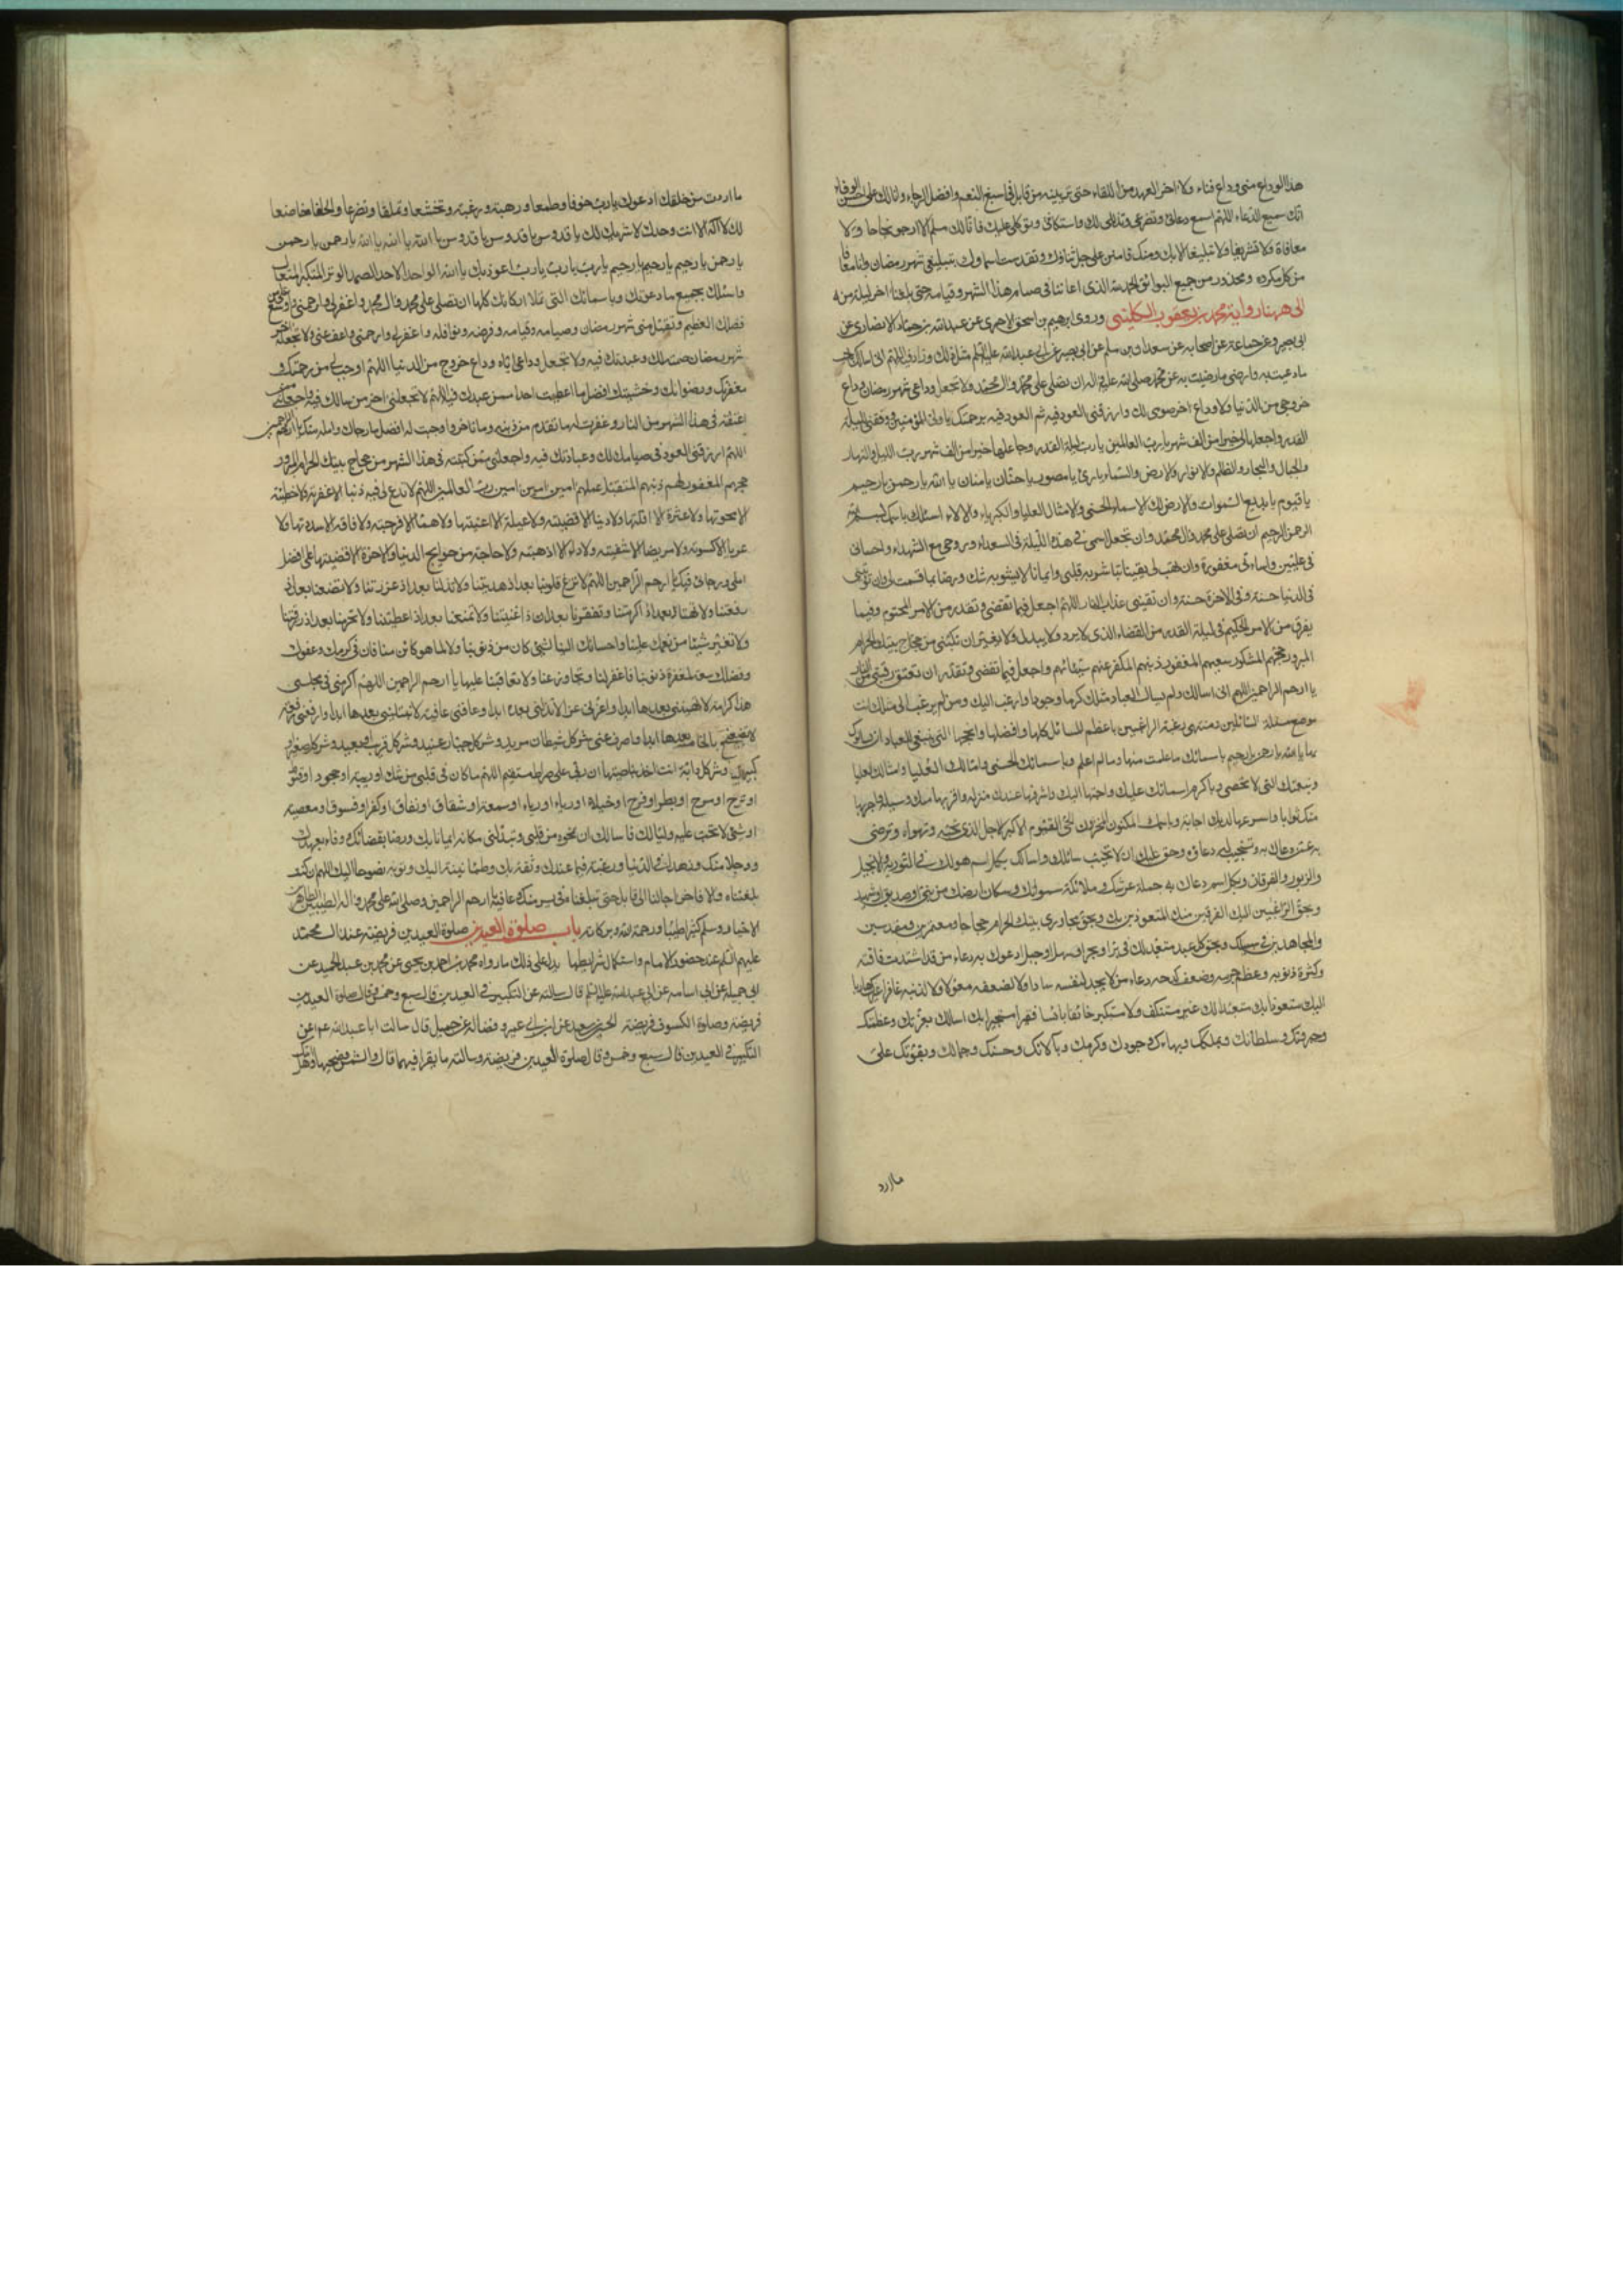 هذا الوداع منى وداع فناء ولا اخر العهد من اللقاء حتى ترينيه من قابل فى اسبغ النعم وافضل الرجاء وانا لك على احسن الوفاء
انك سميع الدعاء اللهم اسمع دعائى وتضرعى وتذللى لك واستكانتى وتوكلى عليك فانا لك سلم لا ارجو نجاحا ولا
معافاة ولا تشريفا ولا تبليغا الا بك ومنك فامنن على جل ثناؤك وتقدست اسماؤك بتبليغى شهر رمضان وانا معافا
من كل مكروه ومحذور من جميع البوائق الحمد لله الذى اعاننا فى صيام هذا الشهر وقيامه حتى بلغنا اخر ليلة منه
الى ههنا رواية محمد بن يعقوب الكلينى وروى ابرهيم بن اسحق الاحمرى عن عبد الله بن حماد الانصارى عن
ابى بصير وعن جماعة من اصحابه عن سعدان بن مسلم عن ابى بصير عن ابى عبد الله عليه السلم مثل ذلك وزاد فيه اللهم انى اسالك باحب
ما دعيت به وارضى ما رضيت به عن محمد صلى الله عليه واله ان تصلى على محمد وال محمد ولا تجعل وداعى شهر رمضان وداع
خروجى من الدنيا ولا وداع اخر صومى لك وارزقنى العود فيه ثم العود فيه برحمتك يا ولى المؤمنين ووفقنى لليلة
القدر واجعلها لى خيرا من الف شهر يا رب العالمين يا رب ليلة القدر وجاعلها خيرا من الف شهر رب الليل والنهار
والجبال والبحار والظلم والانوار والارض والسماء يا بارئ يا مصور يا حنان يا منان يا الله يا رحمن يا رحيم
يا قيوم يا بديع السموات والارض لك الاسماء الحسنى والامثال العليا والكبرياء والالاء اسئلك باسمك بسم الله
الرحمن الرحيم ان تصلى على محمد وال محمد وان تجعل اسمى فى هذه الليلة فى السعداء وروحى مع الشهداء واحسانى
فى عليين واساءتى مغفورة وان تهب لى يقينا تباشر به قلبى وايمانا لا يشوبه شك ورضا بما قسمت لى وان توتينى
فى الدنيا حسنة وفى الاخرة حسنة وان تقينى عذاب النار اللهم اجعل فيما تقضى وتقدر من الامر المحتوم وفيما
يفرق من الامر الحكيم فى ليلة القدر من القضاء الذى لا يرد ولا يبدل ولا يغير ان تكتبنى من حجاج بيتك الحرام
المبرور حجهم المشكور سعيهم المغفور ذنبهم المكفر عنهم سيئاتهم واجعل فيما تقضى وتقدر ان تعتق رقبتى من النار
يا ارحم الراحمين اللهم انى اسالك ولم يسال العباد مثلك كرما وجودا وارغب اليك ولم يرغب الى مثلك انت
موضع مسئلة السائلين ومنتهى رغبة الراغبين باعظم المسائل كلها وافضلها وانجحها التى ينبغى للعباد ان يسالوك
بها يا الله يا رحمن يا رحيم باسمائك ما علمت منها وما لم اعلم وباسمائك الحسنى وامثالك العليا
وبنعمتك التى لا تحصى وباكرم اسمائك عليك واحبها اليك واشرفها عندك منزلة واقربها منك وسيلة واجزلها
منك ثوابا واسرعها لديك اجابة وباسمك المكنون المخزون الحى القيوم الاكبر الاجل الذى تحبه وتهواه وترضى
به عمن دعاك به وتستجيب له دعاءه وحق عليك ان لا تخيب سائلك واسالك بكل اسم هو لك فى التورية والانجيل
والزبور والفرقان وبكل اسم دعاك به حملة عرشك وملائكة سمواتك وسكان ارضك من نبى او صديق او شهيد
وبحق الراغبين اليك الفرقين منك المتعوذين بك وبحق مجاورى بيتك الحرام حجاجا ومعتمرين ومقدسين
والمجاهدين فى سبيلك وبحق كل عبد متعبد لك فى بر او بحر او سهل او جبل ادعوك دعاء من قد اشتدت فاقته
وكثرت ذنوبه وعظم جرمه وضعف كدحه دعاء من لا يجد لنفسه سادا ولا لضعفه معولا ولا لذنبه غافرا غيرك هاربا
اليك متعوذا بك متعبدا لك غير مستنكف ولا مستكبر خائفا بائسا فقيرا مستجيرا بك اسالك بعزتك وعظمتك
وجبروتك وسلطانك وبملكك وببهائك وجودك وكرمك وبآلائك وحسنك وجمالك وبقوتك على
ما اردت
ما اردت من خلقك ادعوك يا رب خوفا وطمعا ورهبة ورغبة وتخشعا وتملقا وتضرعا والحافا خاضعا
لك لا اله الا انت وحدك لا شريك لك يا قدوس يا قدوس يا قدوس يا الله يا الله يا الله يا رحمن يا رحمن
يا رحمن يا رحيم يا رحيم يا رحيم يا رب يا رب يا رب اعوذ بك يا الله الواحد الاحد الصمد الوتر المتكبر المتعال
واسئلك بجميع ما دعوتك وباسمائك التى تملا اركانك كلها ان تصلى على محمد وال محمد واغفر لى وارحمنى واوسع على من
فضلك العظيم وتقبل منى شهر رمضان وصيامه وقيامه وفرضه ونوافله واغفر لى وارحمنى واعف عنى ولا تجعله اخر
شهر رمضان صمته لك وعبدتك فيه ولا تجعل وداعى اياه وداع خروج من الدنيا اللهم اوجب لى من رحمتك و
مغفرتك ورضوانك وخشيتك افضل ما اعطيت احدا ممن عبدك فيه اللهم لا تجعلنى اخسر من سالك فيه واجعلنى ممن
اعتقته فى هذا الشهر من النار وغفرت له ما تقدم من ذنبه وما تاخر واوجبت له افضل ما رجاك وامله منك يا ارحم الراحمين
اللهم ارزقنى العود فى صيامك لك وعبادتك فيه واجعلنى ممن كتبته فى هذا الشهر من حجاج بيتك الحرام المبرور
حجهم المغفور لهم ذنبهم المتقبل عملهم امين امين امين رب العالمين اللهم لا تدع لى فيه ذنبا الا غفرته ولا خطيئة
الا محوتها ولا عثرة الا اقلتها ولا دينا الا قضيته ولا عيلة الا اغنيتها ولا هما الا فرجته ولا فاقة الا سددتها ولا
عريا الا كسوته ولا مريضا الا شفيته ولا داء الا اذهبته ولا حاجة من حوايج الدنيا والاخرة الا قضيتها على افضل
املى ورجائى فيك يا ارحم الراحمين اللهم لا تزغ قلوبنا بعد اذ هديتنا ولا تذلنا بعد اذ عززتنا ولا تضعنا بعد اذ
رفعتنا ولا تهنا بعد اذ اكرمتنا ولا تفقرنا بعد اذ اغنيتنا ولا تمنعنا بعد اذ اعطيتنا ولا تحرمنا بعد اذ رزقتنا
ولا تغير شيئا من نعمك علينا واحسانك الينا لشئ كان من ذنوبنا ولا لما هو كائن منا فان فى كرمك وعفوك
وفضلك سعة لمغفرة ذنوبنا فاغفر لنا وتجاوز عنا ولا تعاقبنا عليها يا ارحم الراحمين اللهم اكرمنى فى مجلسى
هذا كرامة لا تهيننى بعدها ابدا واعزنى عزا لا تذلنى بعده ابدا وعافنى عافية لا تبتلينى بعدها ابدا وارفعنى رفعة
لا تضعنى بعدها ابدا واصرف عنى شر كل شيطان مريد وشر كل جبار عنيد وشر كل قريب او بعيد وشر كل صغير او
كبير وشر كل دابة انت اخذ بناصيتها ان ربى على صراط مستقيم اللهم ما كان فى قلبى من شك او ريبة او جحود او قنوط
او ترح او مرح او بطر او فرح او خيلاء او رياء او سمعة او شقاق او نفاق او كفر او فسوق او معصية
او شئ لا تحب عليه وليا لك فاسالك ان تمحوه من قلبى وتبدلنى مكانه ايمانا بك ورضا بقضائك ووفاء بعهدك
ووجلا منك وزهدا فى الدنيا ورغبة فيما عندك وثقة بك وطمانينة اليك وتوبة نصوحا اليك اللهم ان كنت
بلغتناه والا فاخر اجالنا الى قابل حتى تبلغناه فى يسر منك وعافية يا ارحم الراحمين وصلى الله على محمد واله الطيبين الطاهرين
الاخيار وسلم كثيرا طيبا ورحمة الله وبركاته باب صلوة العيدين صلوة العيدين فريضة عند ال محمد
عليهم السلم عند حضور الامام واستكمال شرائطها يدل على ذلك ما رواه محمد بن احمد بن يحيى عن محمد بن عبد الحميد عن
ابى جميلة عن ابى اسامة عن ابى عبد الله عليه السلم قال سالته عن التكبير فى العيدين قال سبع وخمس وقال صلوة العيدين
فريضة وصلوة الكسوف فريضة الحسين بن سعيد عن ابن ابى عمير وفضالة عن جميل قال سالت ابا عبد الله عم عن
التكبير فى العيدين قال سبع وخمس وقال صلوة العيدين فريضة وسالته ما يقرا فيهما قال والشمس وضحيها وهل